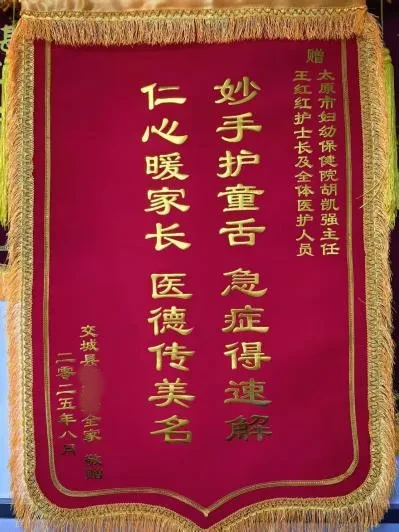 赠
太原市妇幼保健院胡凯强主任
王红红护士长及全体医护人员
妙手护童舌 急症得速解
仁心暖家长 医德传美名
交城县 全家 敬赠
二零二五年八月